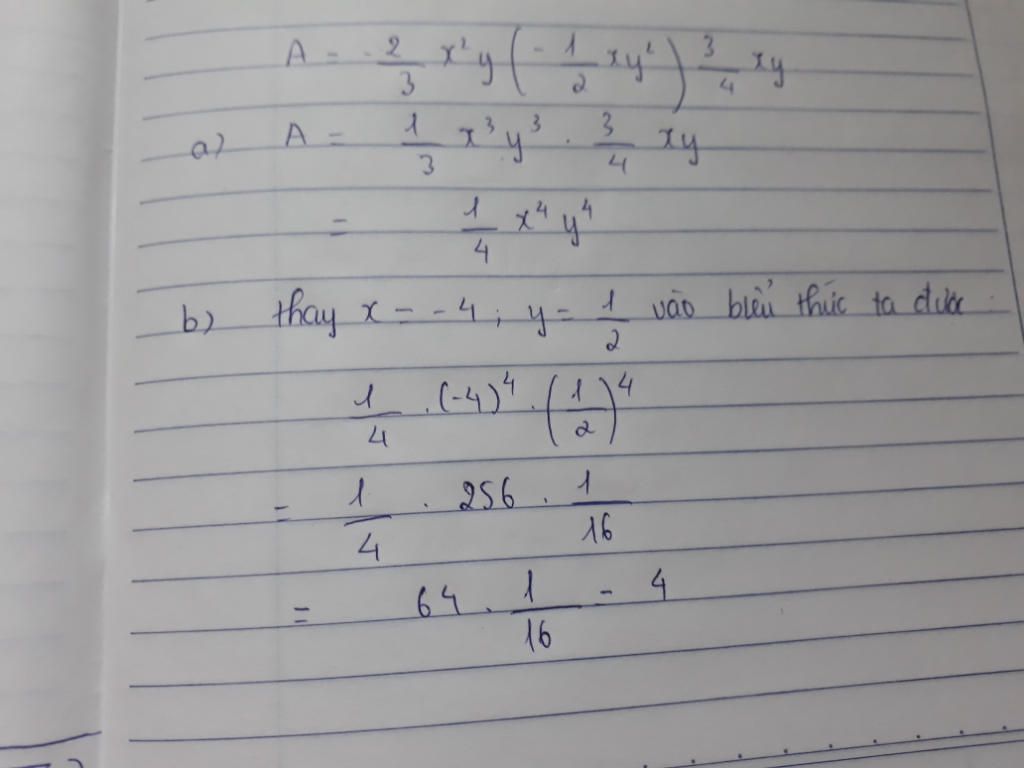 A = -2/3 x²y (-1/2 xy²) 3/4 xy
a) A = 1/3 x³y³ . 3/4 xy
= 1/4 x⁴y⁴
b) thay x = -4; y = 1/2 vào biểu thức ta được
1/4 . (-4)⁴ . (1/2)⁴
= 1/4 . 256 . 1/16
= 64 . 1/16 = 4